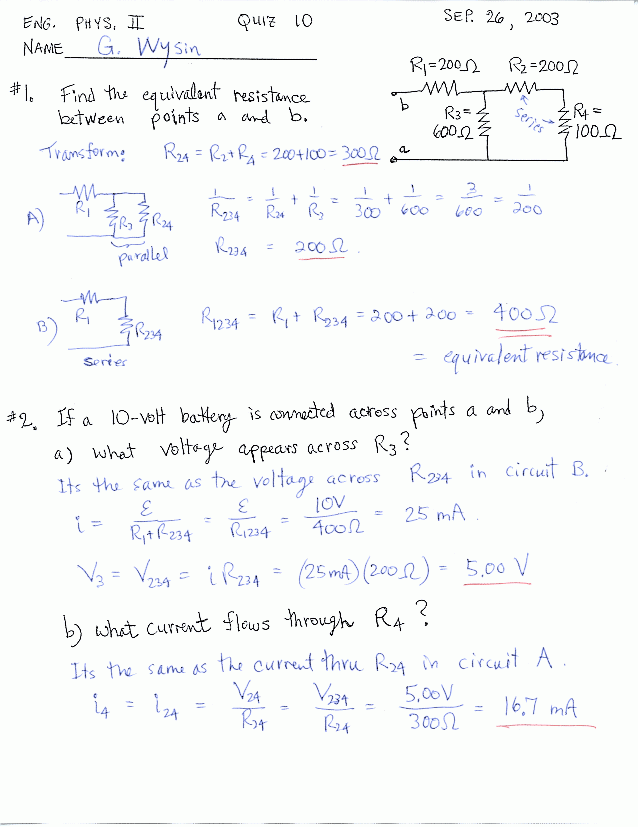 ENG. PHYS. II QUIZ 10 SEP. 26, 2003
NAME G. Wysin
R₁=200Ω R₂=200Ω
#1. Find the equivalent resistance
between points a and b.
b R3= 600Ω series R4= 100Ω
a
Transform: R₂₄ = R₂+R₄ = 200+100 = 300Ω
A) R₁ R₃ R₂₄
parallel
1/R₂₃₄ = 1/R₂₄ + 1/R₃ = 1/300 + 1/600 = 3/600 = 1/200
R₂₃₄ = 200Ω.
B) R₁ R₂₃₄
series
R₁₂₃₄ = R₁ + R₂₃₄ = 200 + 200 = 400Ω
= equivalent resistance.
#2. If a 10-volt battery is connected across points a and b,
a) what voltage appears across R₃?
Its the same as the voltage across R₂₃₄ in circuit B.
i = ℰ/(R₁+R₂₃₄) = ℰ/R₁₂₃₄ = 10V/400Ω = 25 mA.
V₃ = V₂₃₄ = i R₂₃₄ = (25mA)(200Ω) = 5.00 V
b) what current flows through R₄?
Its the same as the current thru R₂₄ in circuit A.
i₄ = i₂₄ = V₂₄/R₂₄ = V₂₃₄/R₂₄ = 5.00V/300Ω = 16.7 mA